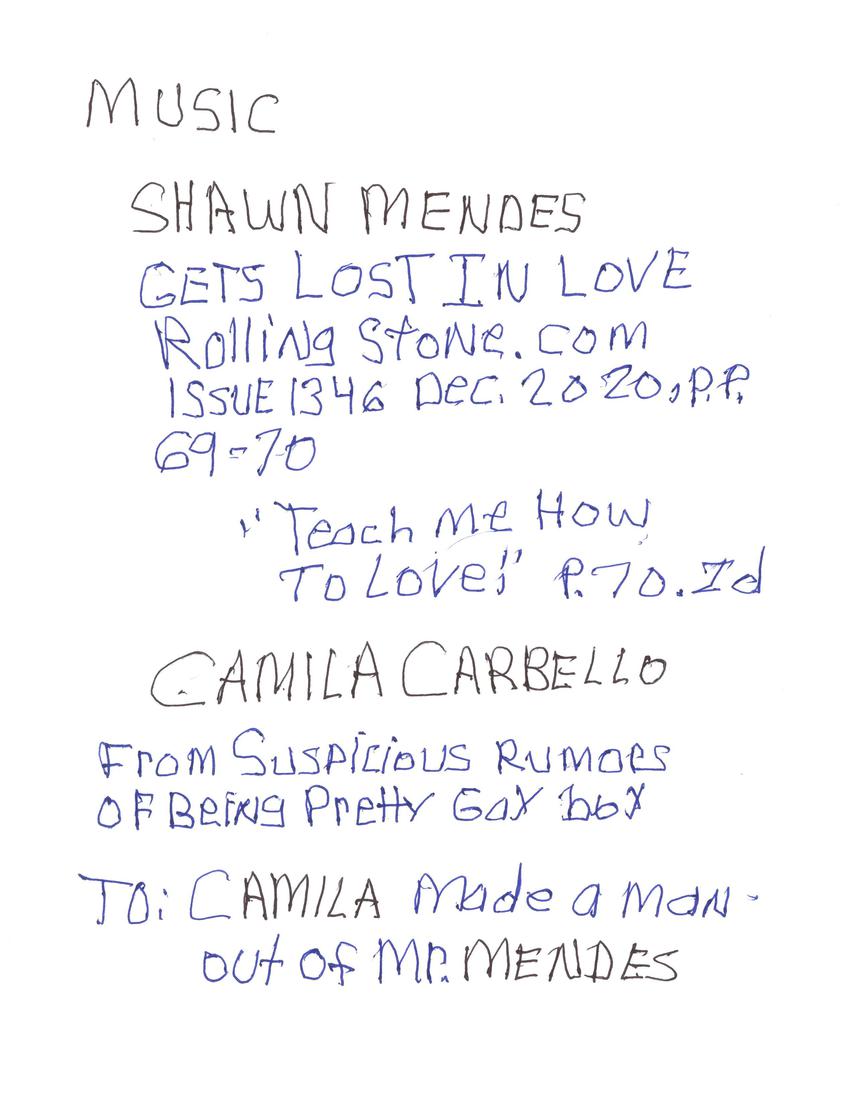 MUSIC
SHAWN MENDES
GETS LOST IN LOVE
Rolling Stone.com
ISSUE 1346 Dec. 2020, P.P.
69-70
"Teach Me How
To Love!" P.70. Id
CAMILA CARBELLO
From Suspicious Rumors
OF Being Pretty Gay boy
TO: CAMILA Made a Man-
out of Mr. MENDES